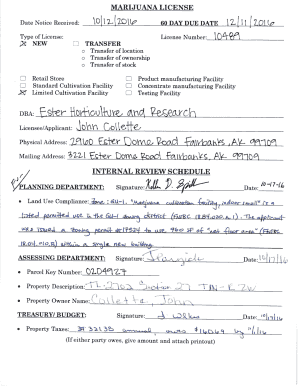 MARIJUANA LICENSE
Date Notice Received: 10/12/2016 60 DAY DUE DATE 12/11/2016
Type of License: License Number: 10489
☒ NEW ☐ TRANSFER
○ Transfer of location
○ Transfer of ownership
○ Transfer of stock
☐ Retail Store ☐ Product manufacturing Facility
☐ Standard Cultivation Facility ☐ Concentrate manufacturing Facility
☒ Limited Cultivation Facility ☐ Testing Facility
DBA: Ester Horticulture and Research
Licensee/Applicant: John Collette
Physical Address: 2960 Ester Dome Road Fairbanks, AK 99709
Mailing Address: 3221 Ester Dome Road Fairbanks, AK 99709
INTERNAL REVIEW SCHEDULE
PLANNING DEPARTMENT: Signature: Date: 10-17-16
• Land Use Compliance: Zone: GU-1. "Marijuana cultivation facility, indoor small" is a
listed permitted use in the GU-1 zoning district (FNSBC 18.84.020.A.1). The applicant
was issued a zoning permit # to use of "net floor area" (FNSBC
18.04.010.B) within a single new building.
ASSESSING DEPARTMENT: Signature: Date: 10/17/16
• Parcel Key Number: 0204927
• Property Description: TL-2703 Section 27 T1N-R2W
• Property Owner Name: Collette, John
TREASURY/BUDGET: Signature: Date: 10/17/16
• Property Taxes: annual, owes by
(If either party owes, give amount and attach printout)